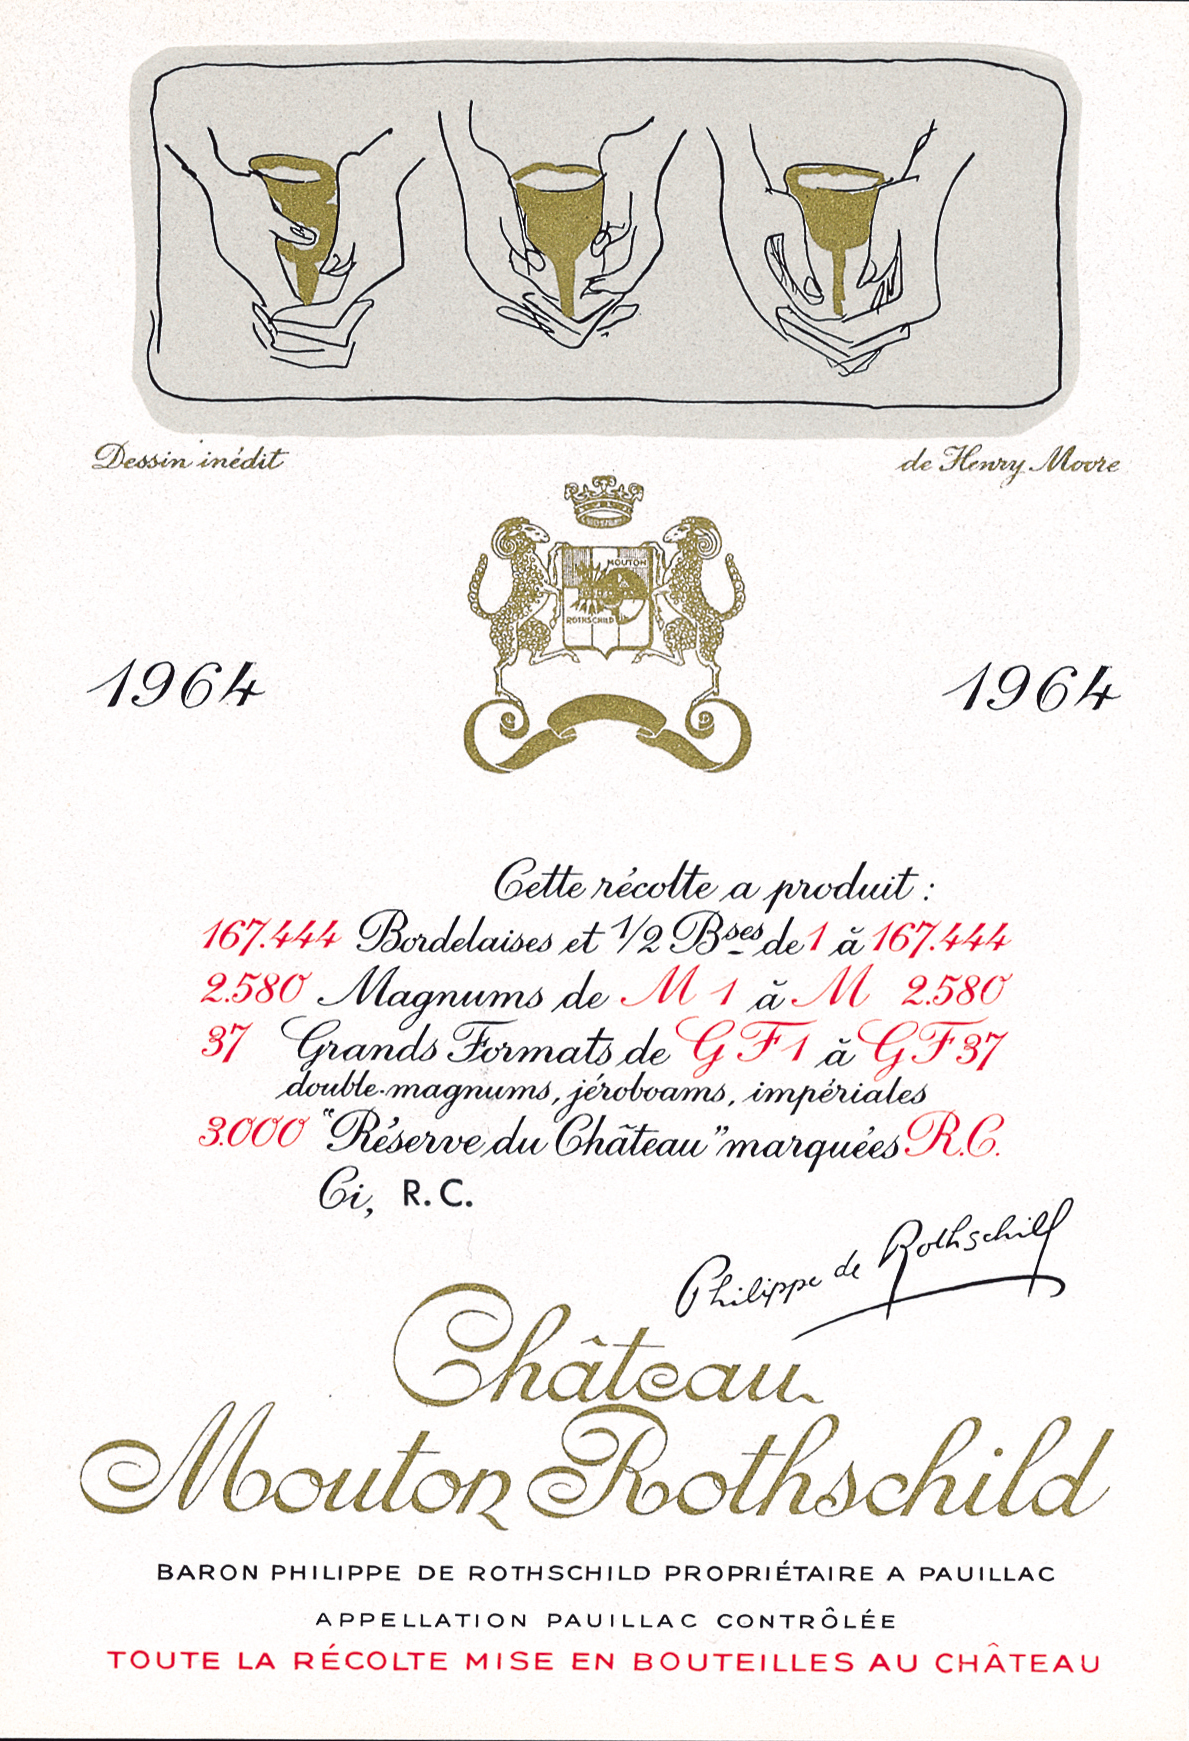 Dessin inédit
de Henry Moore
MOUTON
ROTHSCHILD
1964
1964
Cette récolte a produit :
167.444 Bordelaises et 1/2 Bses de 1 à 167.444
2.580 Magnums de M 1 à M 2.580
37 Grands Formats de GF1 à GF37
double-magnums, jéroboams, impériales
3.000 "Réserve du Château" marquées R.C.
Ci, R.C.
Philippe de Rothschild
Château
Mouton Rothschild
BARON PHILIPPE DE ROTHSCHILD PROPRIÉTAIRE A PAUILLAC
APPELLATION PAUILLAC CONTRÔLÉE
TOUTE LA RÉCOLTE MISE EN BOUTEILLES AU CHÂTEAU